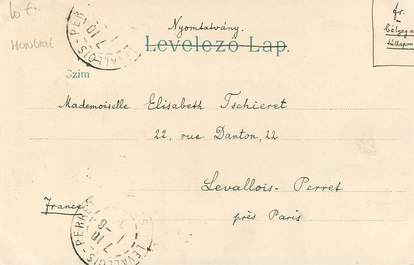 10 €.
HONGRIE
Nyomtatvány.
Levelező-Lap.
Szim
fr.
Mademoiselle Elisabeth Tschieret
22, rue Danton, 22
Levallois-Perret
France
près Paris
LEVALLOIS-PERRET
LEVALLOIS-PERRET